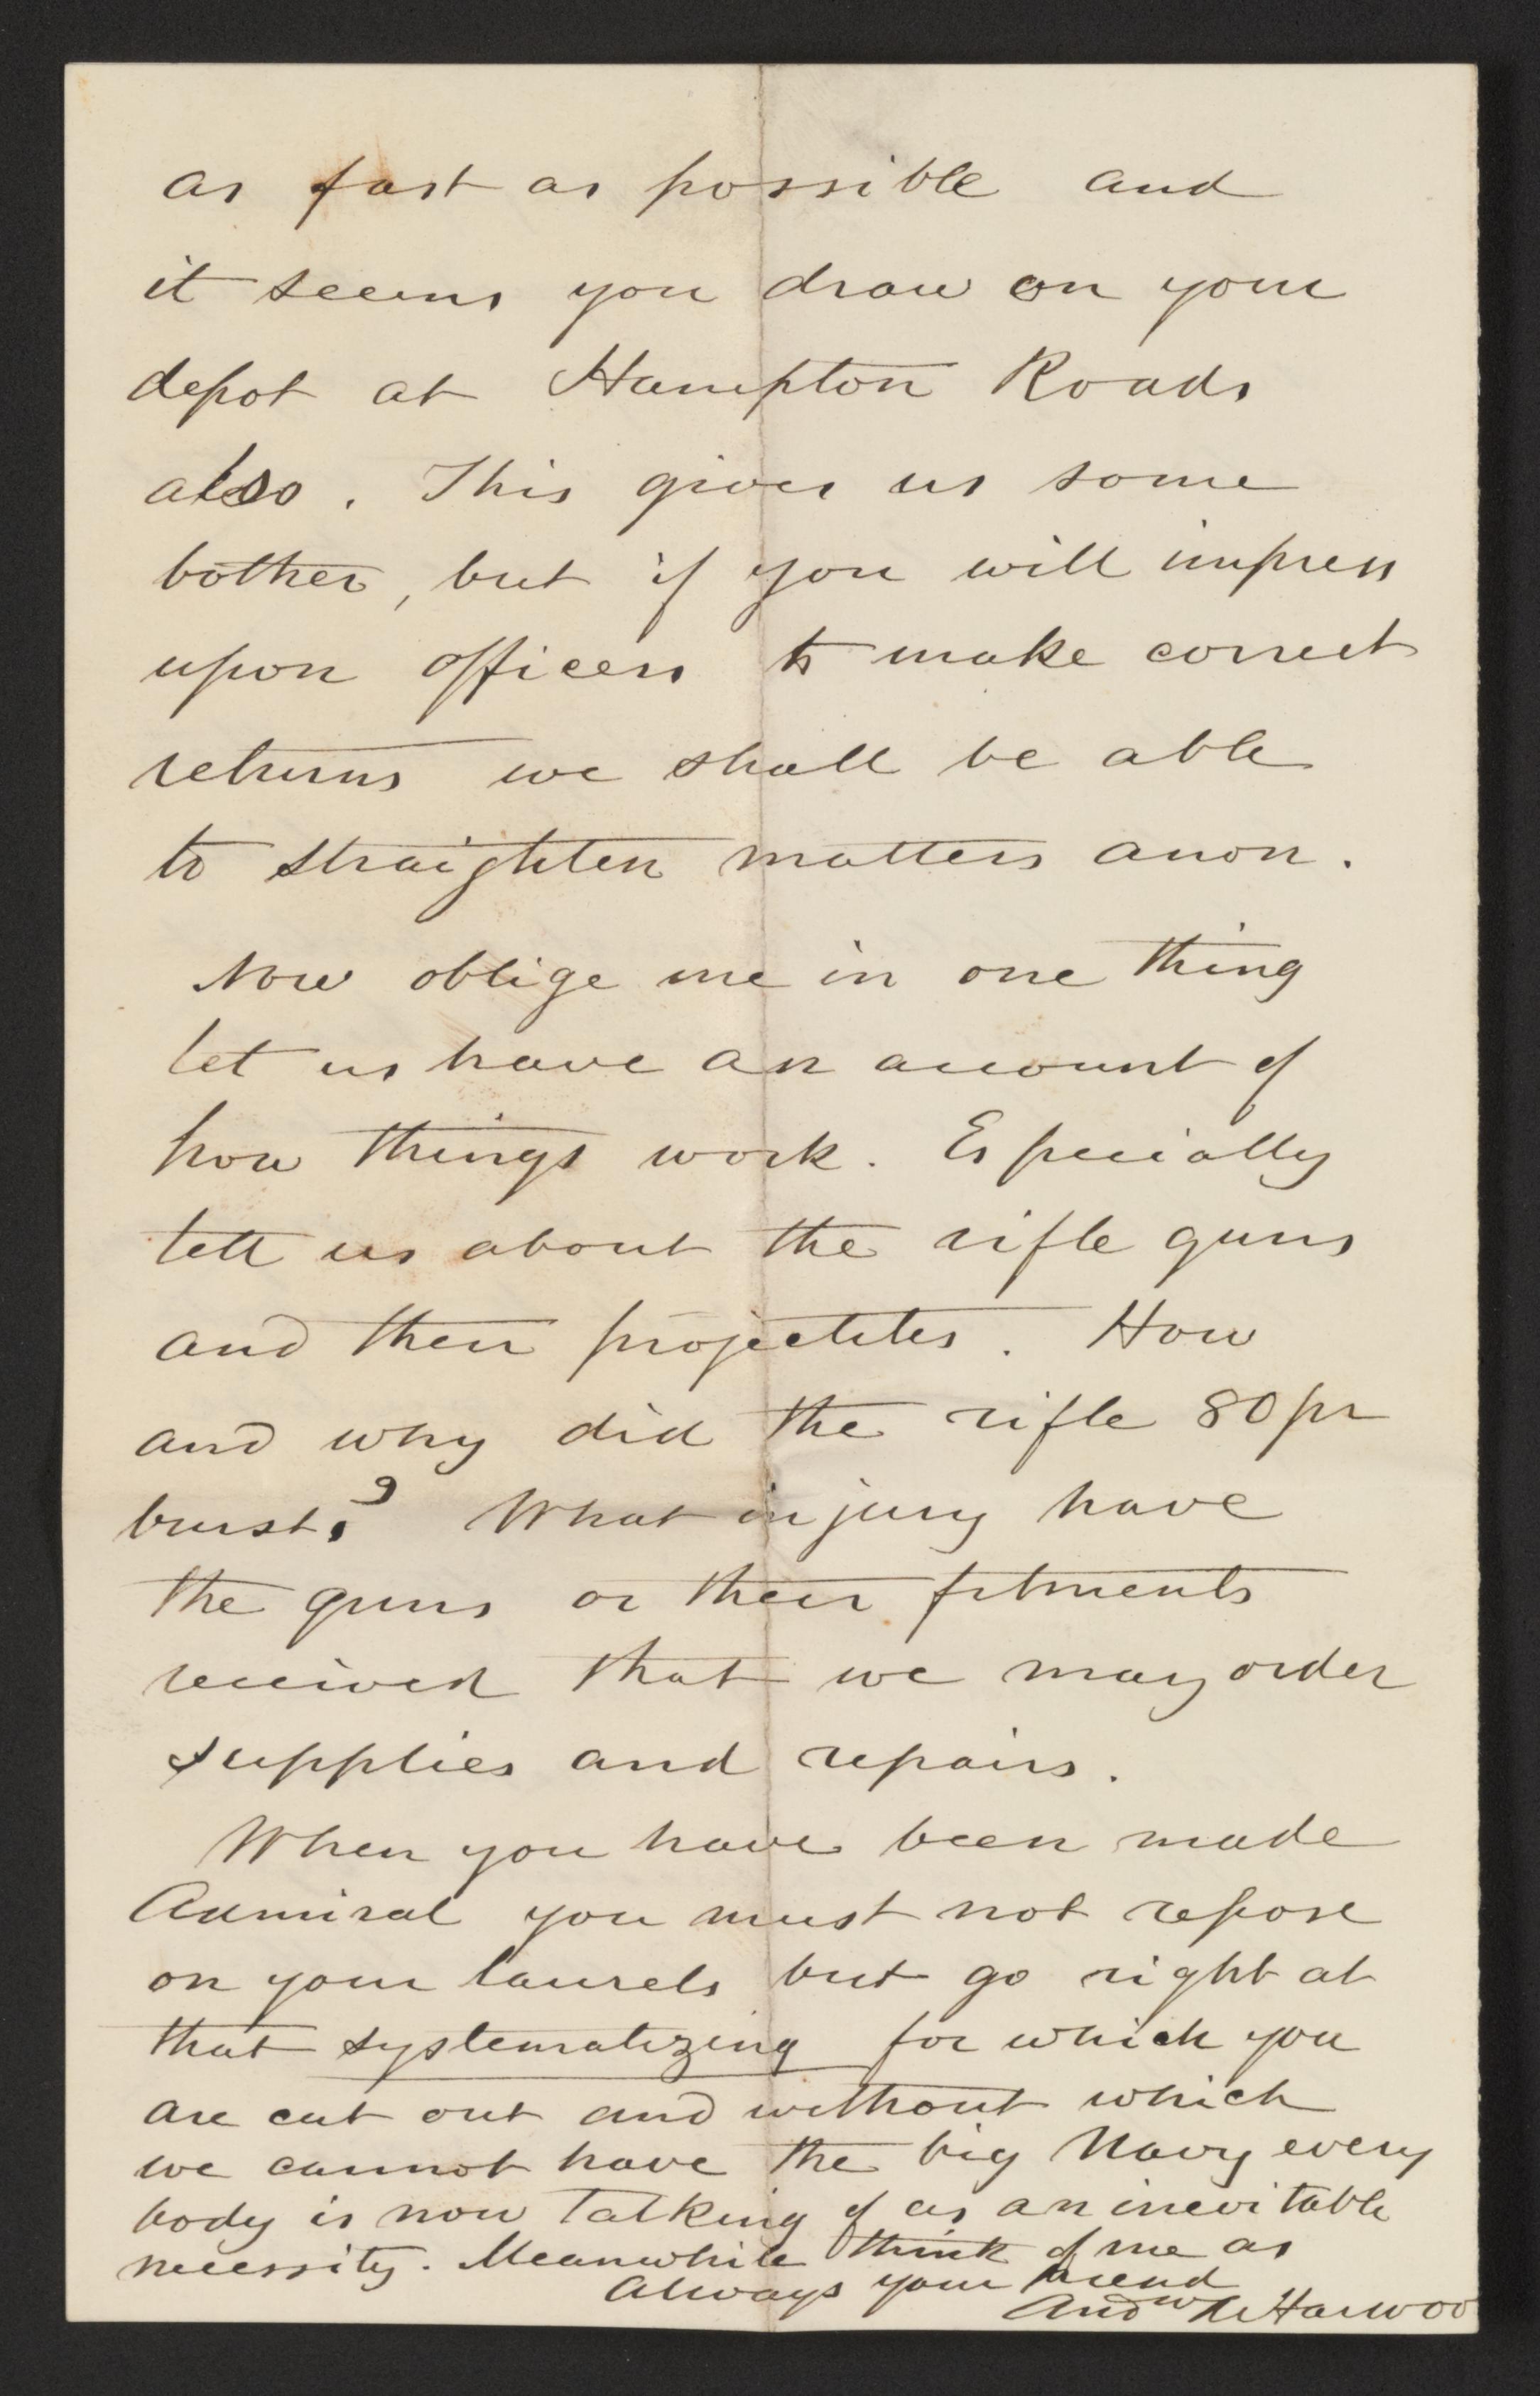 as fast as possible and
it seems you draw on your
depot at Hampton Roads
also. This gives us some
bother, but if you will impress
upon officers to make correct
returns we shall be able
to straighten matters anon.
Now oblige me in one thing
let us have an account of
how things work. Especially
tell us about the rifle guns
and their projectiles. How
and why did the rifle 80 pr
burst? What injury have
the guns or their fitments
received that we may order
supplies and repairs.
When you have been made
Admiral you must not repose
on your laurels but go right at
that systematizing for which you
are cut out and without which
we cannot have the big Navy every
body is now talking of as an inevitable
necessity. Meanwhile think of me as
Always your friend
Andw A Harwoo